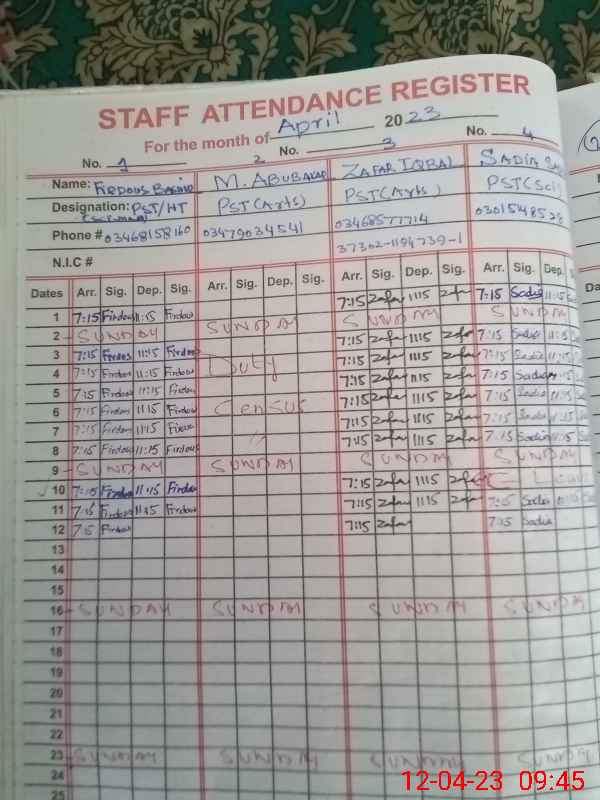 STAFF ATTENDANCE REGISTER
For the month of April 2023
No. 1 2 No. 3 No. 4
Name: Firdous M. ABUBAKAR ZAFAR IQBAL SADIA
Designation: PST/HT PST(Arts) PST(Arts) PST(Sci
Phone # 03468158160 03479034541 03468577714 0301548528
37302-1194739-1
N.I.C #
Dates Arr. Sig. Dep. Sig. Arr. Sig. Dep. Sig. Arr. Sig. Dep. Sig. Arr. Sig. Dep.
1 7:15 Firdous 11:15 Firdous 7:15 Zafar 1115 Zafar 7:15 Sadia 11:15
2 SUNDAY SUNDAY SUNDAY SUNDAY
3 7:15 Firdous 11:15 Firdous 7:15 Zafar 1115 Zafar 7:15 Sadia 11:15
4 7:15 Firdous 11:15 Firdous Duty 7:15 Zafar 1115 Zafar 7:15 Sadia 11:15
5 7:15 Firdous 11:15 Firdous 7:15 Zafar 1115 Zafar 7:15 Sadia 11:15
6 7:15 Firdous 11:15 Firdous Census 7:15 Zafar 1115 Zafar 7:15 Sadia 11:15
7 7:15 Firdous 11:15 Firdous " 7:15 Zafar 1115 Zafar 7:15 Sadia 11:15
8 7:15 Firdous 11:15 Firdous 7:15 Zafar 1115 Zafar 7:15 Sadia 11:15
9 SUNDAY SUNDAY SUNDAY SUNDAY
10 7:15 Firdous 11:15 Firdous 7:15 Zafar 1115 Zafar C Leave
11 7:15 Firdous 11:15 Firdous 7:15 Zafar 1115 Zafar 7:15 Sadia
12 7:15 Firdous 7:15 Zafar 7:15 Sadia
13
14
15
16 SUNDAY SUNDAY SUNDAY SUNDAY
17
18
19
20
21
22
23 SUNDAY SUNDAY SUNDAY SUNDAY
24
25
12-04-23 09:45